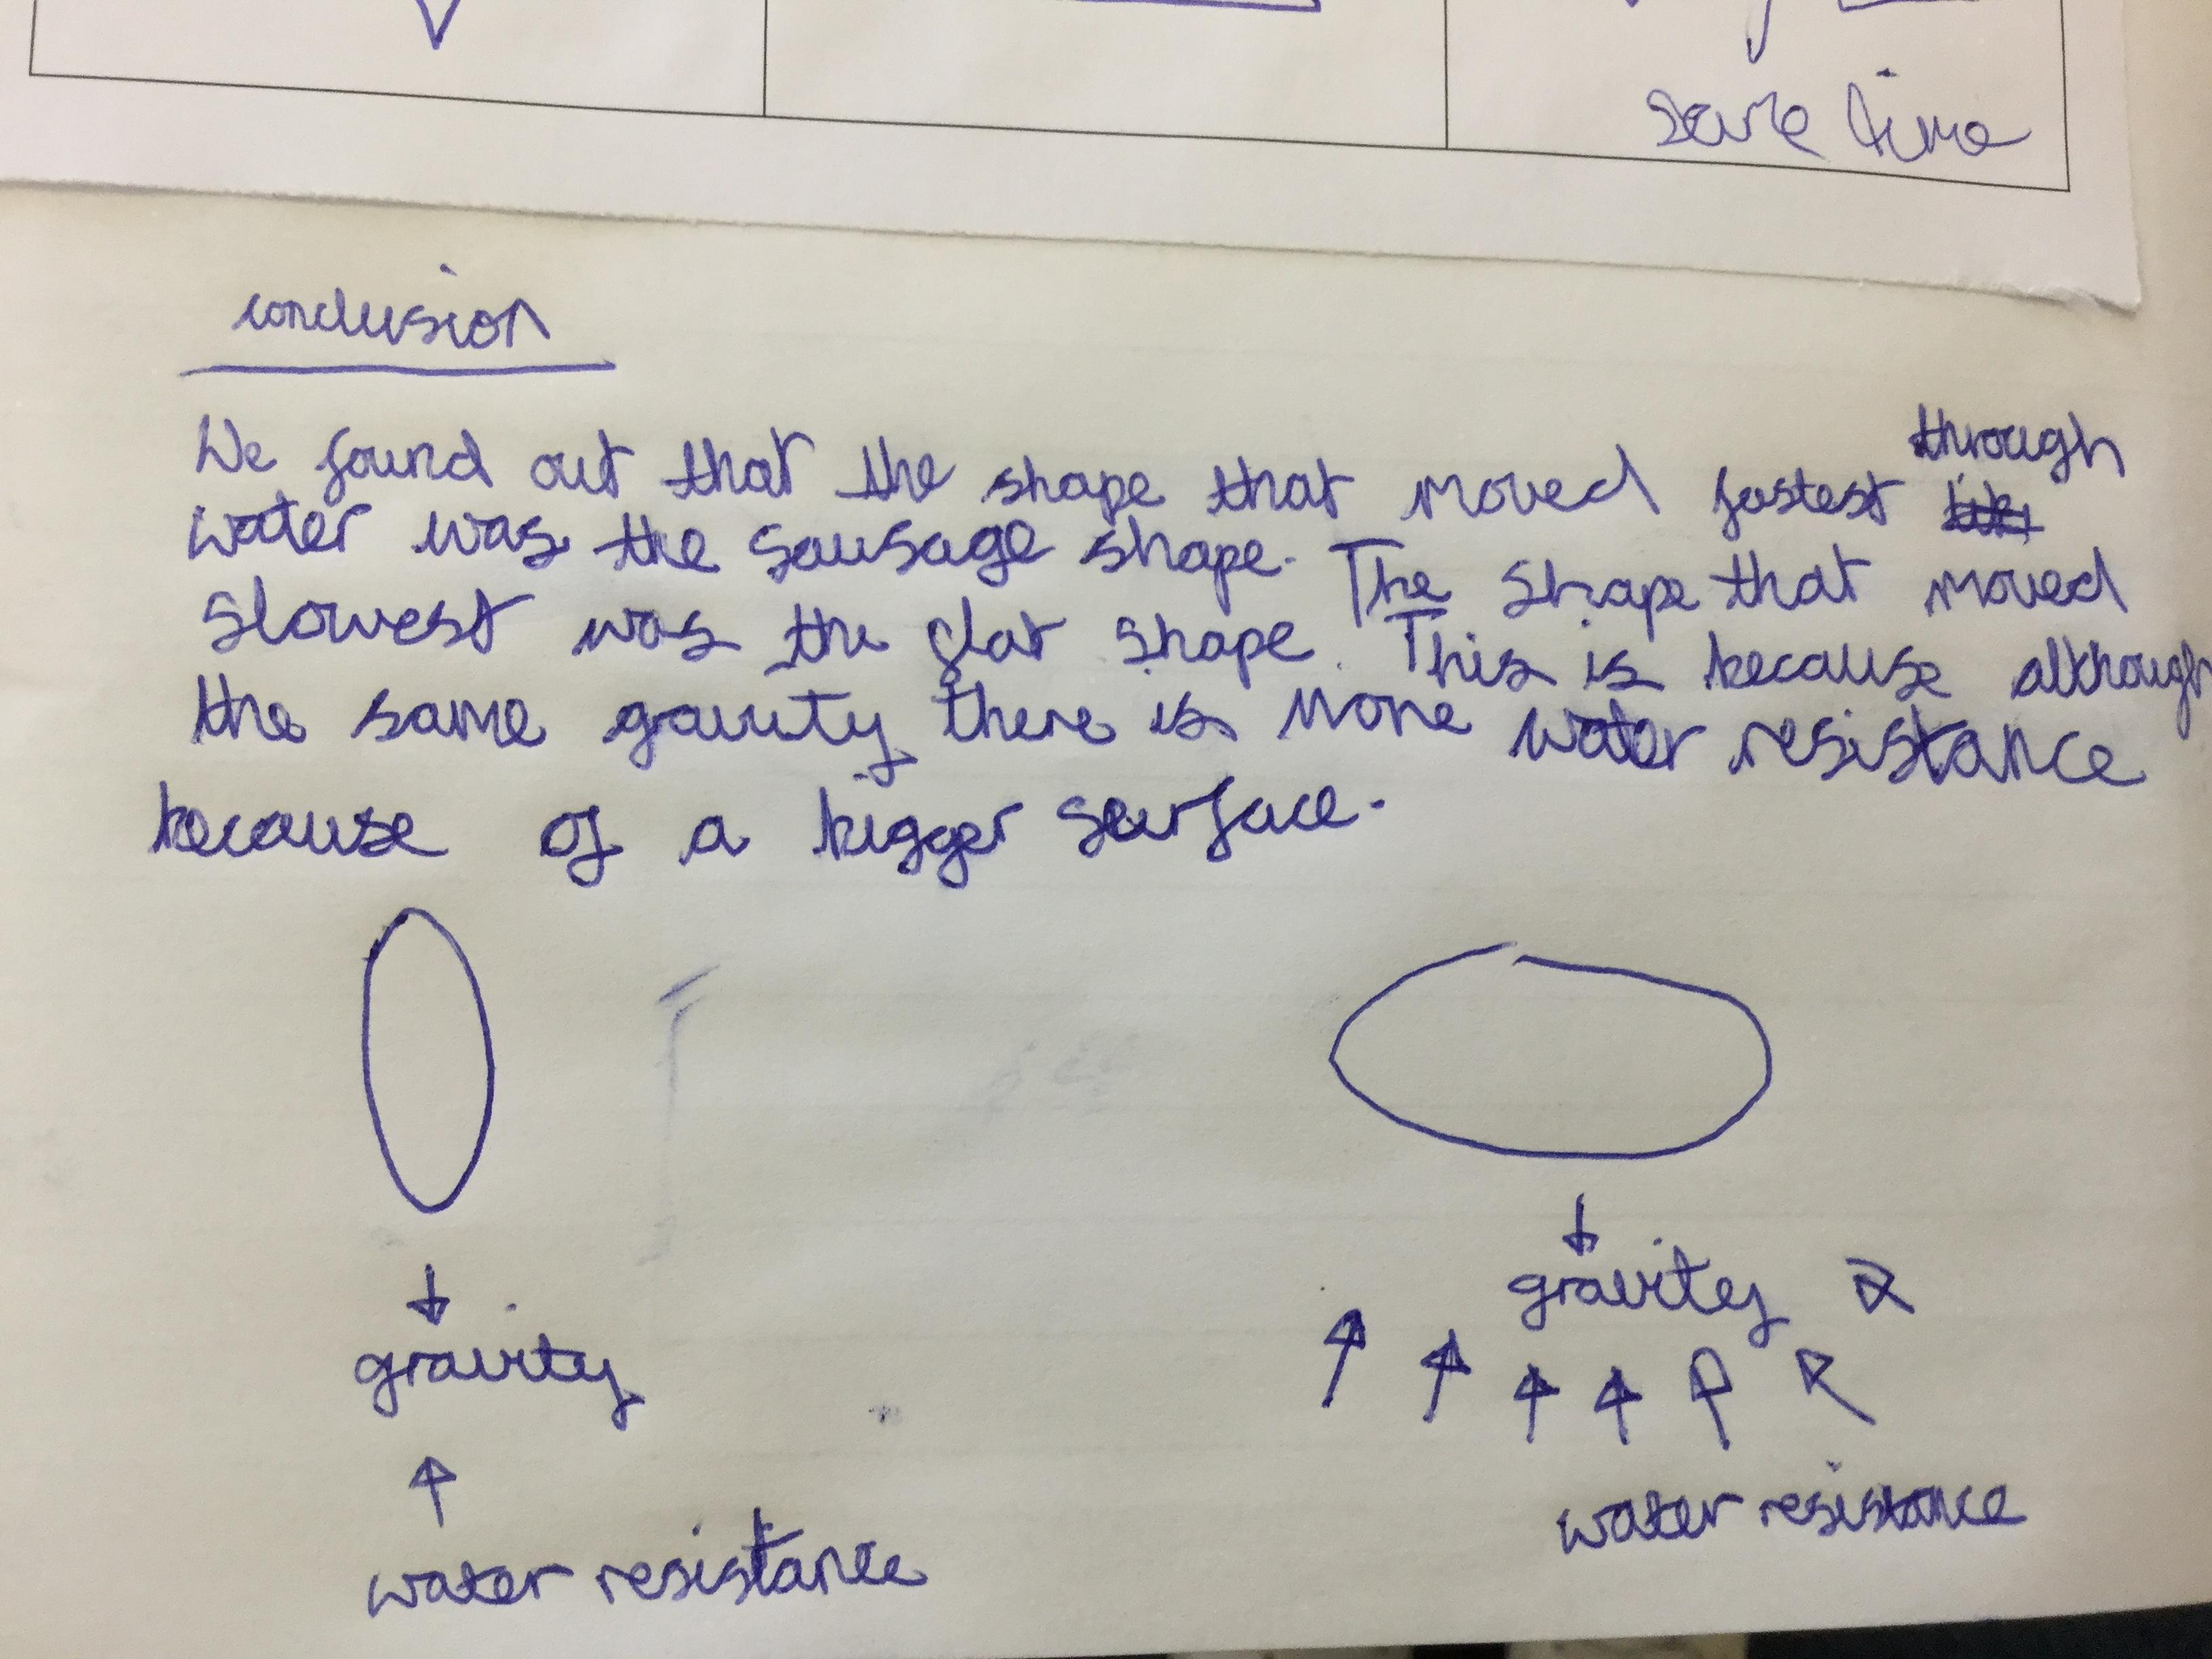 same time
conclusion
We found out that the shape that moved fastest through
water was the sausage shape. The shape that moved
slowest was the flat shape. This is because although
the same gravity there is more water resistance
because of a bigger surface.
gravity
water resistance
gravity
water resistance